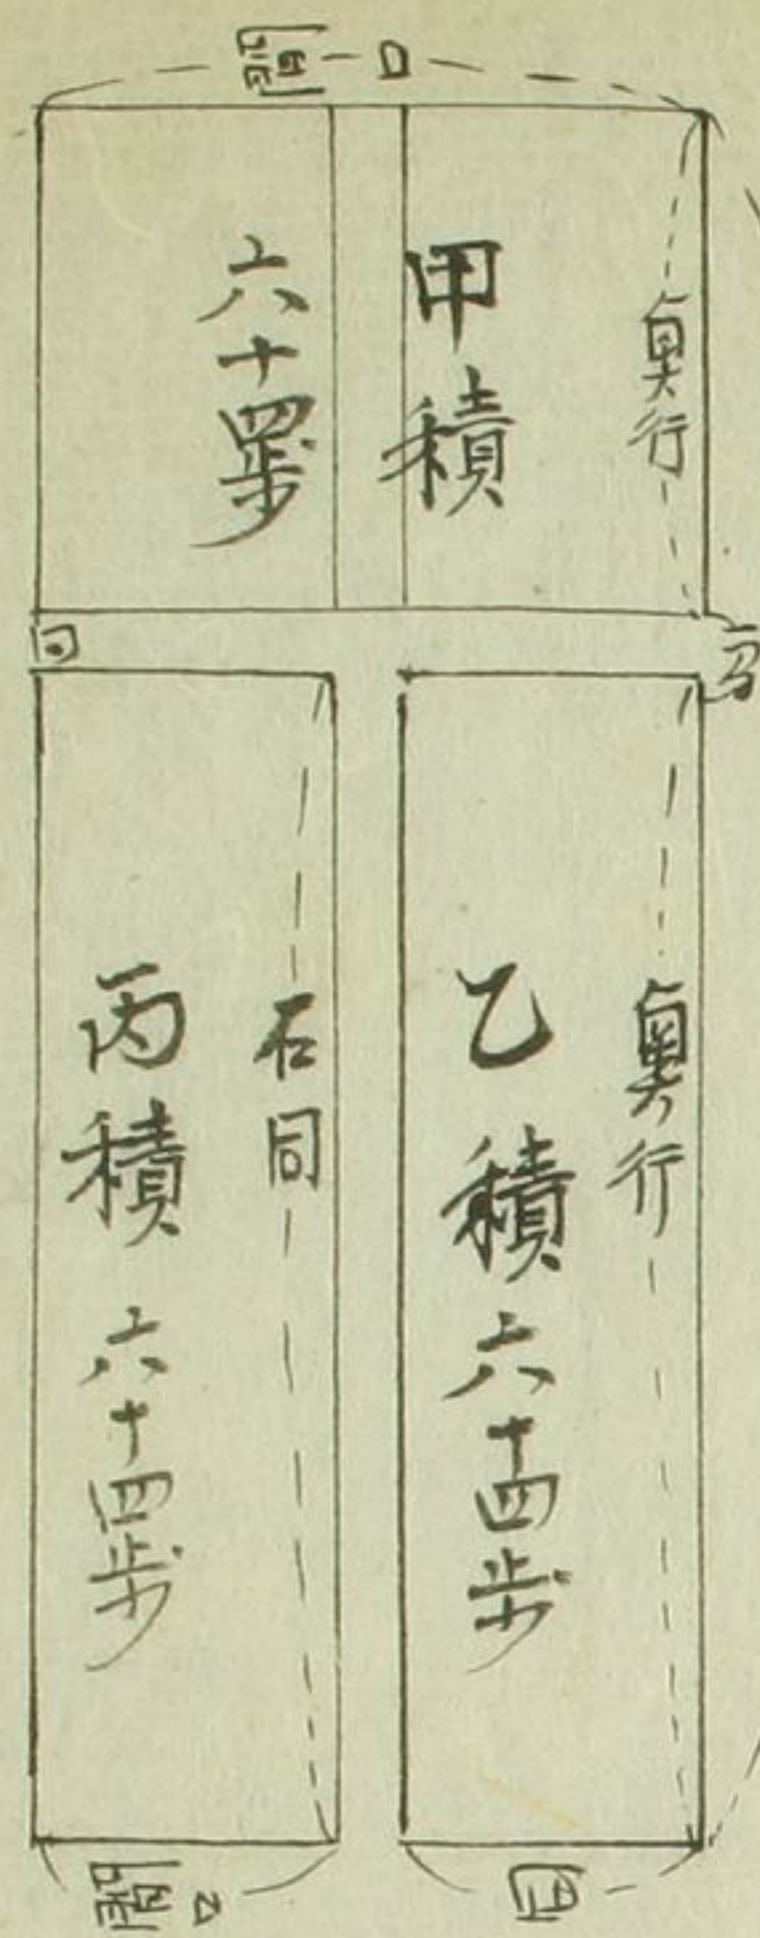 間口
奥行
甲積
六十四歩
同
奥行
乙積 六十四歩
右同
丙積 六十四歩
間口
同